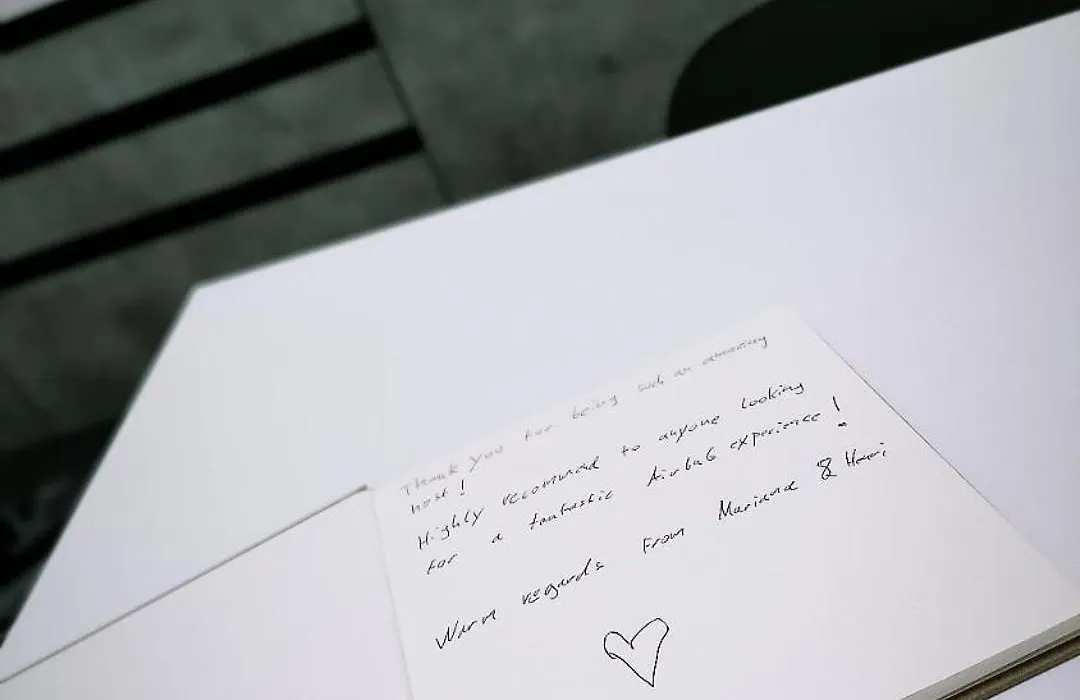 Thank you for being such an amazing
host!
Highly recommend to anyone looking
for a fantastic Airbnb experience!
Warm regards from Mariana & Henri